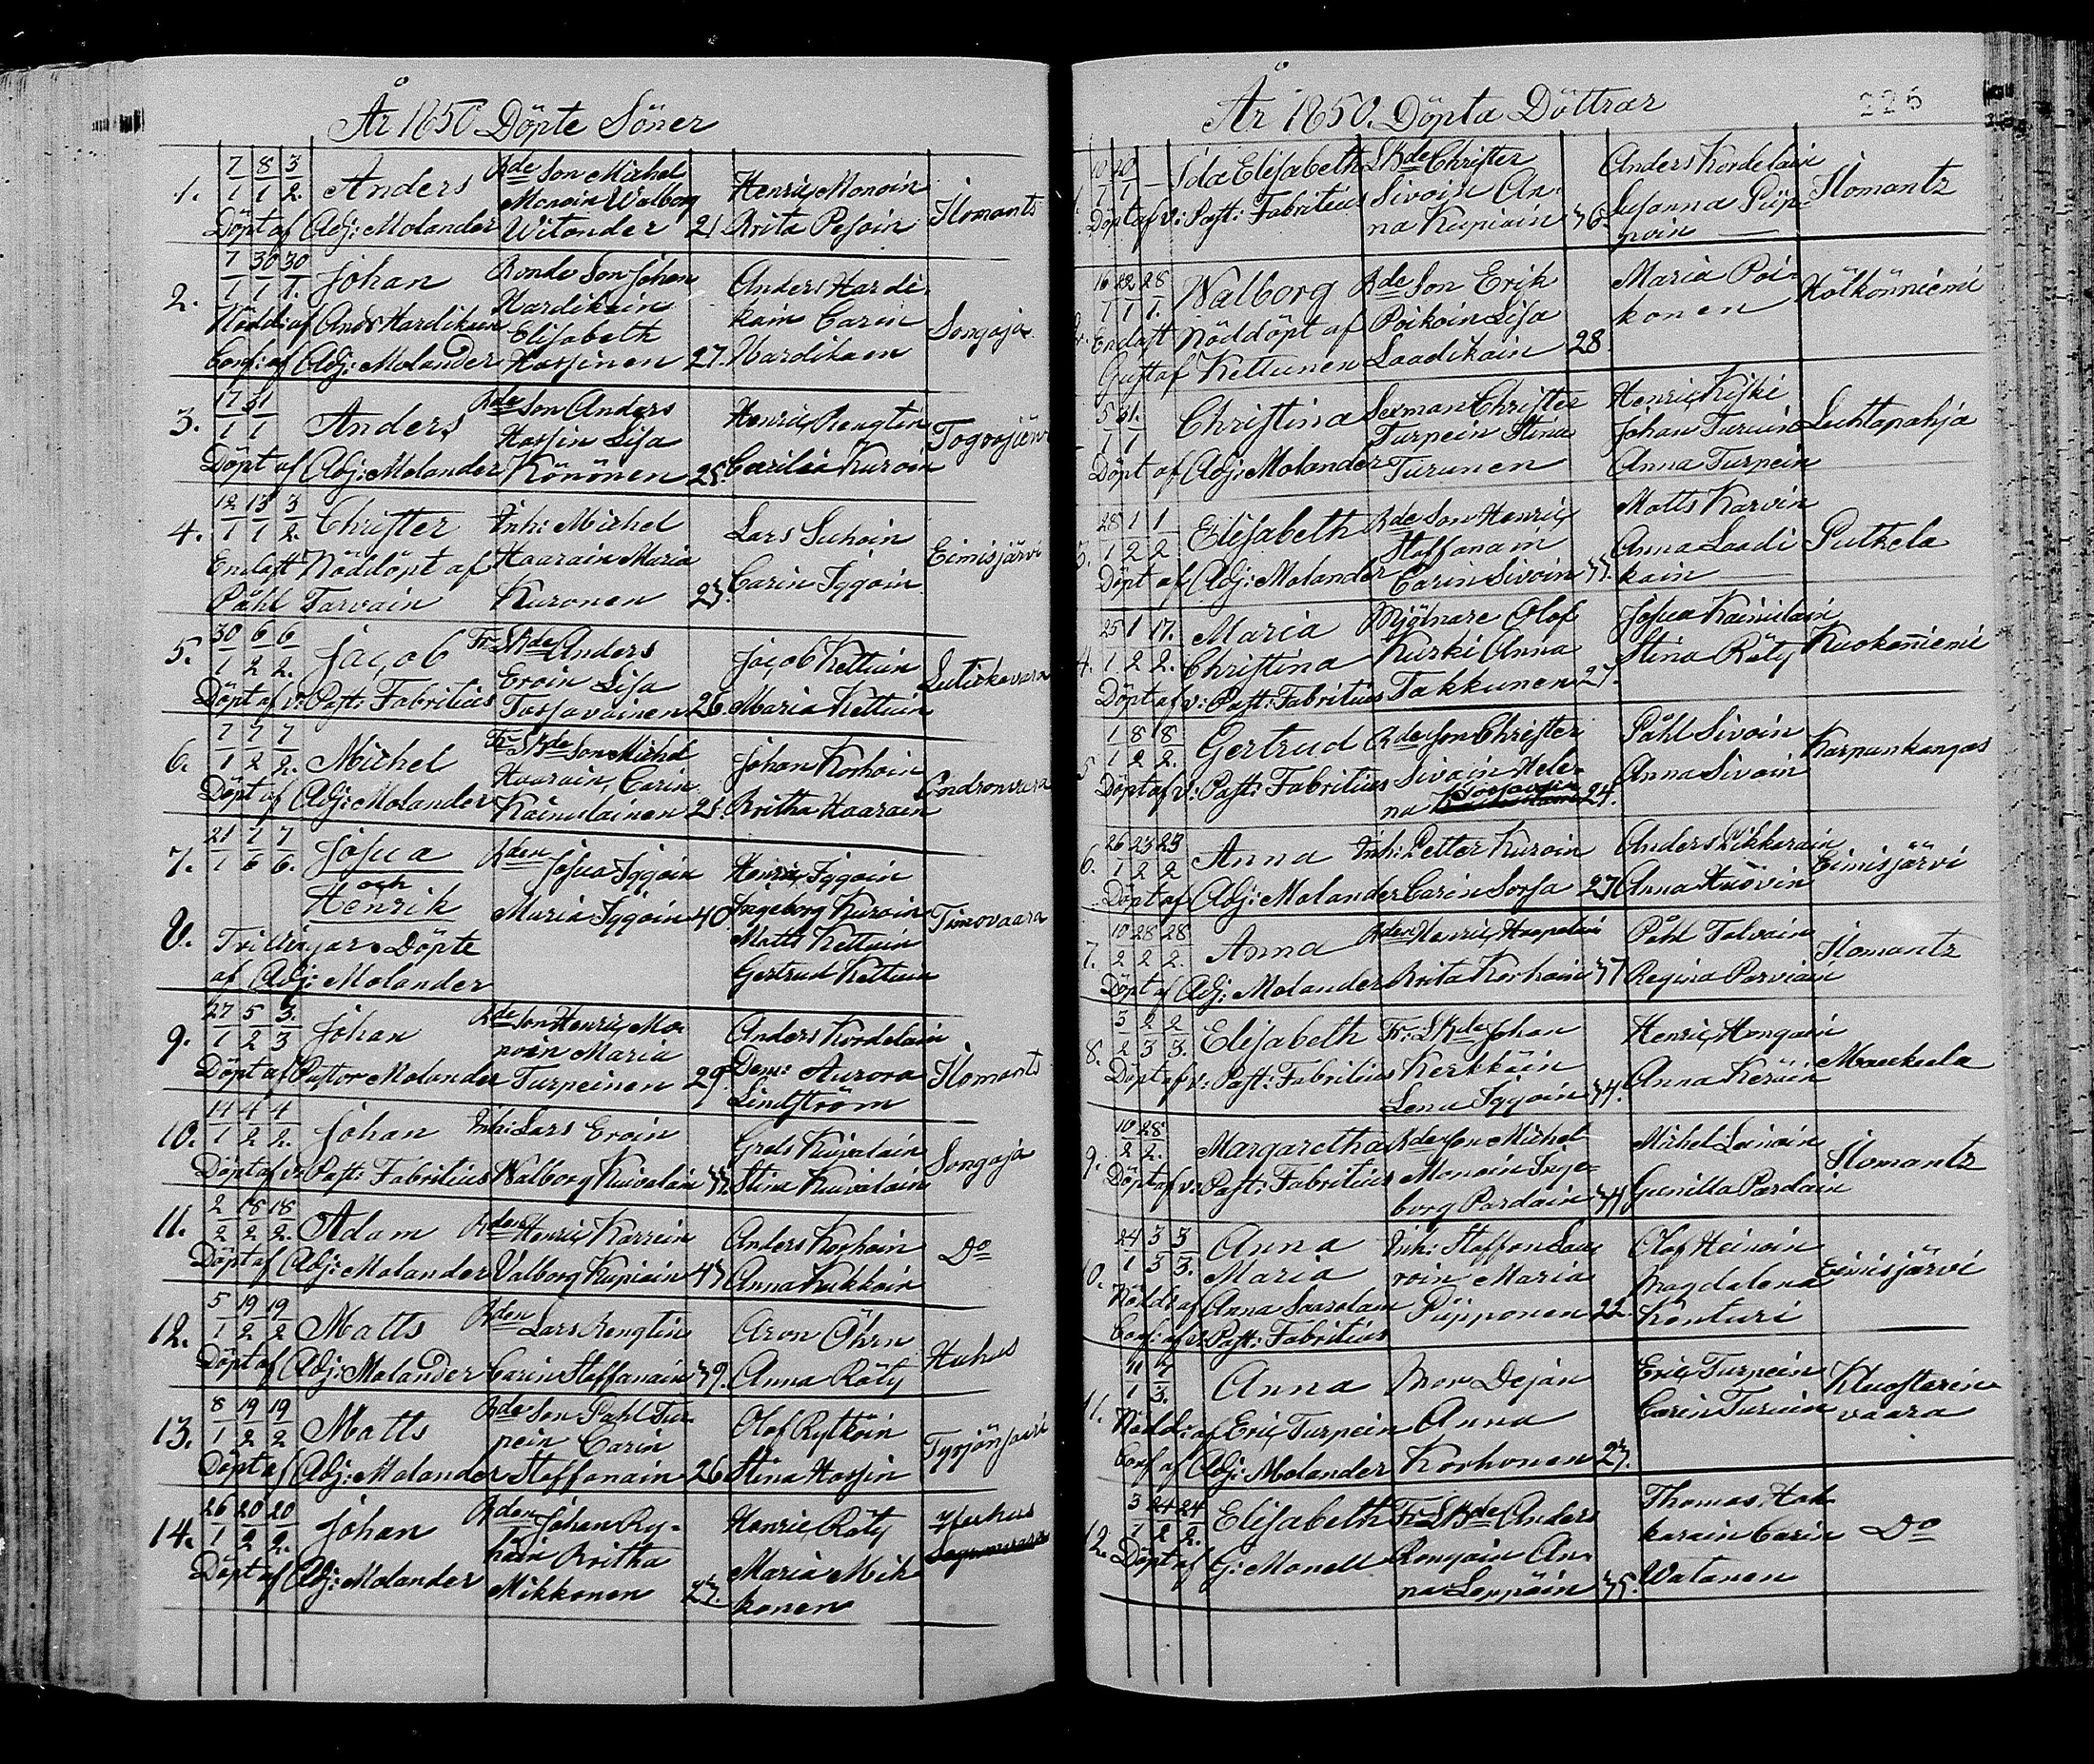 År 1850 Döpte Söner
1. 7/1 8/1 3/2. Anders Bde Son Michel Monoin Walborg Witander 21. Henric Monoin Brita Pesoin Ilomants
Döpt af Adj: Molander
2. 7/1 30/1 30/1. Johan Bonde Son Johan Hardikain Elisabeth Hassinen 27. Anders Hardikain Carin Hardikaen Songaja
Nödd: af And: Hardikain
Conf: af Adj: Molander
3. 17/1 31/1 Anders Bde Son Anders Hassin Lisa Könönen 25. Henric Rengtin Caecilia Kuroin
Döpt af Adj: Molander
4. 12/1 13/1 3/2. Christer Inh: Michel Haarain Maria Kuronen 23. Lars Suhoin Carin Iggoin Eimisjärvi
Endast Nöddöpt af
Påhl Tarvain
5. 30/1 6/2 6/2. Jacob Fr: SKde Anders Eroin Lisa Tassavainen 26. Jacob Kettuin Maria Kettuin Lutickavaara
Döpt af v: Past: Fabritius
6. 7/1 7/2 7/2. Michel Fr: SKde Son Michel Haarain, Carin Kainulainen 21. Johan Korhoin Britha Haarain Condronvaara
Döpt af Adj: Molander
7. 21/1 7/6 7/6. Josua
och
8. Henrik Bden Josua Iggoin Maria Iggoin 40. Henric Iggoin Ingeborg Kuroin Matts Kettuin Gertrud Kettuin Timovaara
Tvillingar Döpte
af Adj: Molander
9. 27/1 5/2 3/3. Johan Bde Son Henric Monoin Maria Turpeinen 29. Anders Kordelain Dem: Aurora Lindström Ilomants
Döpt af Pastor Molander
10. 14/1 4/2 4/2. Johan Inh: Lars Eroin Walborg Kuivalain 33. Grels Kuivalain Stina Kuivalain Songaja
Döpt af v: Past: Fabritius
11. 2/2 18/2 18/2. Adam Bden Henric Karrein Valborg Kupiain 43 Anders Korhoin Anna Kukkoin Do
Döpt af Adj: Molander
12. 5/1 19/2 19/2 Matts Bden Lars Rengtin Carin Staffanain 39. Aron Öhrn Anna Räty Huhus
Döpt af Adj: Molander
13. 8/1 19/2 19/2 Matts Bde Son Påhl Turpein Carin Staffanain 26 Olof Rytköin Stina Hassin
Döpt af Adj: Molander
14. 26/1 20/2 20/2. Johan Bden Johan Britha Mikkonen 27. Henric Räty Maria Mikkonen Huhus
Döpt af Adj: Molander
År 1850. Döpta Döttrar
226
1. 10/1 20/1 Ida Elisabeth SKde Christer Sivoin Anna Kupiain 36. Anders Kordelain Susanna Piipoin Ilomantz
Döpt af v: Past: Fabritius
2. 16/1 22/1 28/1. Walborg Bde Son Erik Poikoin Lisa Laadikain 28. Maria Poikonen Kölkönniemi
Endast Nöddöpt af
Gustaf Kettunen
5/1 31/1. Christina Sexman Christer Turpein Stina Turunen Henric Kiski Johan Turuin Anna Turpein Lechtapahja
Döpt af Adj: Molander
3. 28/1 1/2 1/2 Elisabeth Bde Son Henric Staffanain Carin Sivoin 33. Matts Karvin Anna Laadikain Putkela
Döpt af Adj: Molander
4. 25/1 1/2 17/2. Maria Christina Mjölnare Olof Kurki Anna Takkunen 27. Josua Kainulain Stina Räty Kuokaniemi
Döpt af v: Past: Fabritius
5 1/1 18/2 18/2. Gertrud Bde Son Christer Sivoin Helena 24. Påhl Sivoin Anna Sivoin Karpankangas
Döpt af v: Past: Fabritius
6. 26/1 23/2 23/2 Anna Inh: Petter Kuroin Carin Sorsa 27 Anders Pikkarain Anna Huovin Eimisjärvi
Döpt af Adj: Molander
7. 10/2 28/2 28/2. Anna Bden Henric Haapalain Brita Korhoin 37 Påhl Talvain Regina Parviain Ilomantz
Döpt af Adj: Molander
8. 3/2 2/3 2/3. Elisabeth Fr: SKde Johan Kerkkäin Lena Iggoin 34. Henric Hongain Anna Keräin Maukula
Döpt af v: Past: Fabritius
9. 10/2 28/2. Margaretha Bde Son Michel Monoin Ingeborg Pardain 34 Michel Lainoin Gunilla Pardain Ilomantz
Döpt af v: Past: Fabritius
10. 24/1 3/3 3/3. Anna Maria Inh: Staffan Lauroin Maria Piipponen 22 Olof Heinoin Magdalena Konturi Eimisjärvi
Nödd: af Anna Saarelain
Conf: af v: Past: Fabritius
11. 11/1 7/3. Anna Mor Dejan Anna Korhonen 27. Eric Turpein Carin Turuin Kluosterinvaara
Nödd: af Eric Turpein
Conf af Adj: Molander
12. 3/1 24/2 24/2. Elisabeth Fr: SKde Anders Rongain Anna Leppäin 35. Thomas Hakkarain Carin Watanen Do
Döpt af G: Monell